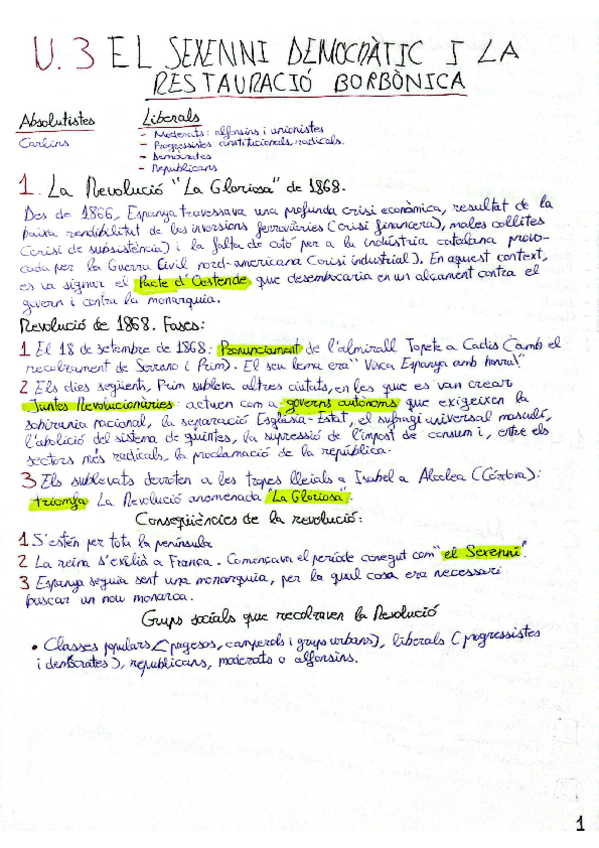 U.3 EL SEXENNI DEMOCRÀTIC I LA
RESTAURACIÓ BORBÒNICA
Absolutistes
Carlins
Liberals
- Moderats: alfonsins i unionistes
- Progressistes: constitucionals, radicals.
- Demòcrates
- Republicans
1. La Revolució "La Gloriosa" de 1868.
Des de 1866, Espanya travessava una profunda crisi econòmica, resultat de la
baixa rendibilitat de les inversions ferroviàries (crisi financera), males collites
(crisi de subsistència) i la falta de cotó per a la indústria catalana provo-
cada per la Guerra Civil nord-americana (crisi industrial). En aquest context,
es va signar el Pacte d'Oostende que desembocaria en un alçament contra el
govern i contra la monarquia.
Revolució de 1868. Fases:
1 El 18 de setembre de 1868: Pronunciament de l'almirall Topete a Cadis (amb el
recolzament de Serrano i Prim). El seu lema era "Visca Espanya amb honra!"
2 Els dies següents, Prim subleva altres ciutats, en les que es van crear
Juntes Revolucionàries: actuen com a governs autònoms que exigeixen la
sobirania nacional, la separació Església-Estat, el sufragi universal masculí,
l'abolició del sistema de quintes, la supressió de l'impost de consum i, entre els
sectors més radicals, la proclamació de la república.
3 Els sublevats derroten a les tropes lleials a Isabel a Alcolea (Còrdova):
triomfa La Revolució anomenada "La Gloriosa".
Conseqüències de la revolució:
1 S'estén per tota la península
2 La reina s'exilià a França. Començava el període conegut com "el Sexenni".
3 Espanya seguia sent una monarquia, per la qual cosa era necessari
buscar un nou monarca.
Grups socials que recolzaven la Revolució
• Classes populars (pagesos, camperols i grups urbans), liberals (progressistes
i demòcrates), republicans, moderats o alfonsins.
1